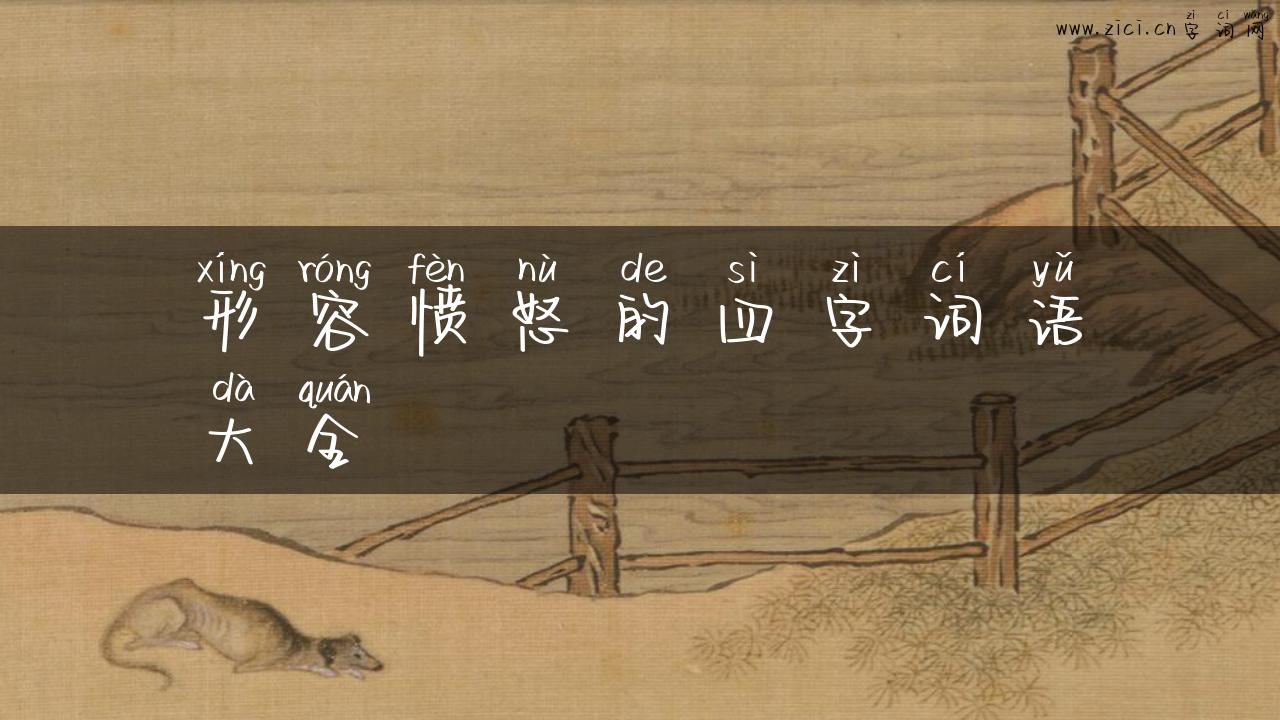 zì cí wǎng
www.zici.cn 字词网
xíng róng fèn nù de sì zì cí yǔ
形容愤怒的四字词语
dà quán
大全